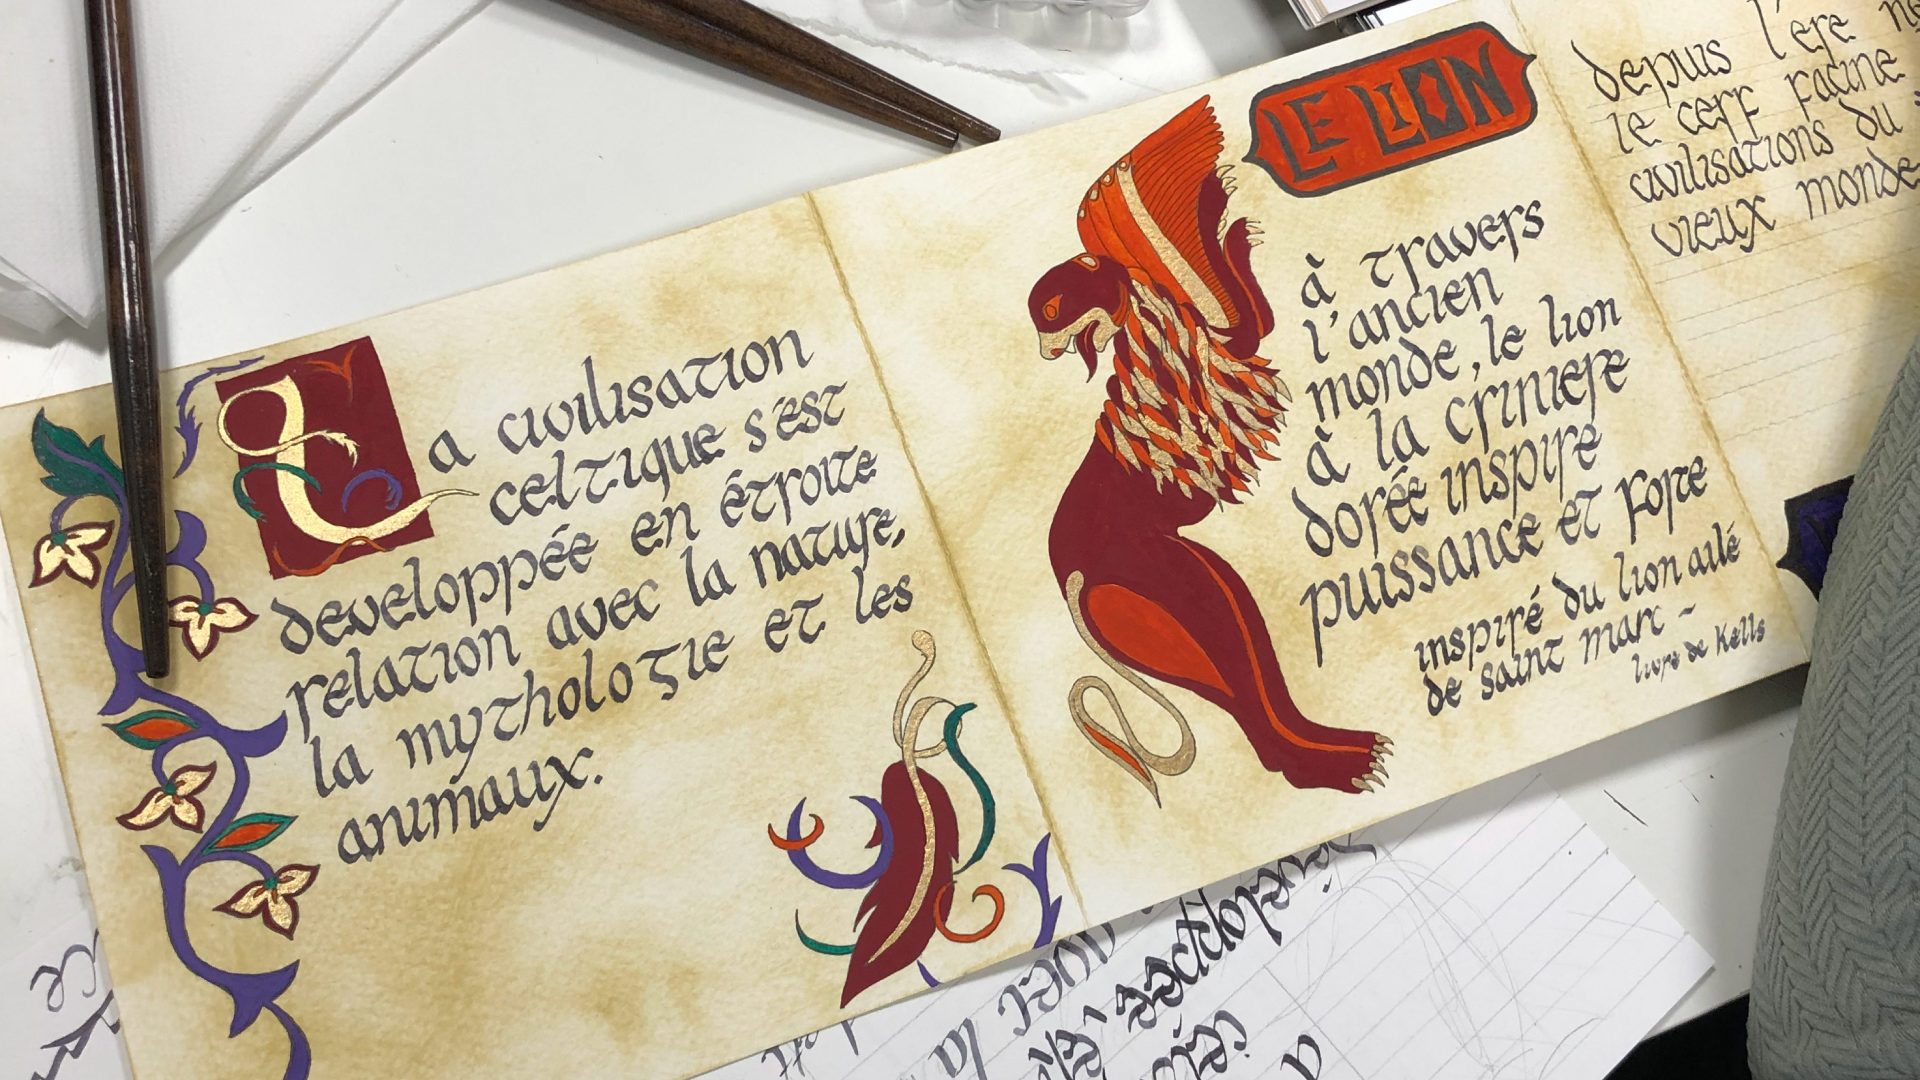 La civilisation
celtique s'est
developpée en étroite
relation avec la nature,
la mythologie et les
animaux.
LE LION
à travers
l'ancien
monde, le lion
à la criniere
dorée inspire
puissance et force
inspiré du lion ailé
de saint marc ~
livre de Kells
depuis l'ere
le cerf
civilisations du
vieux monde